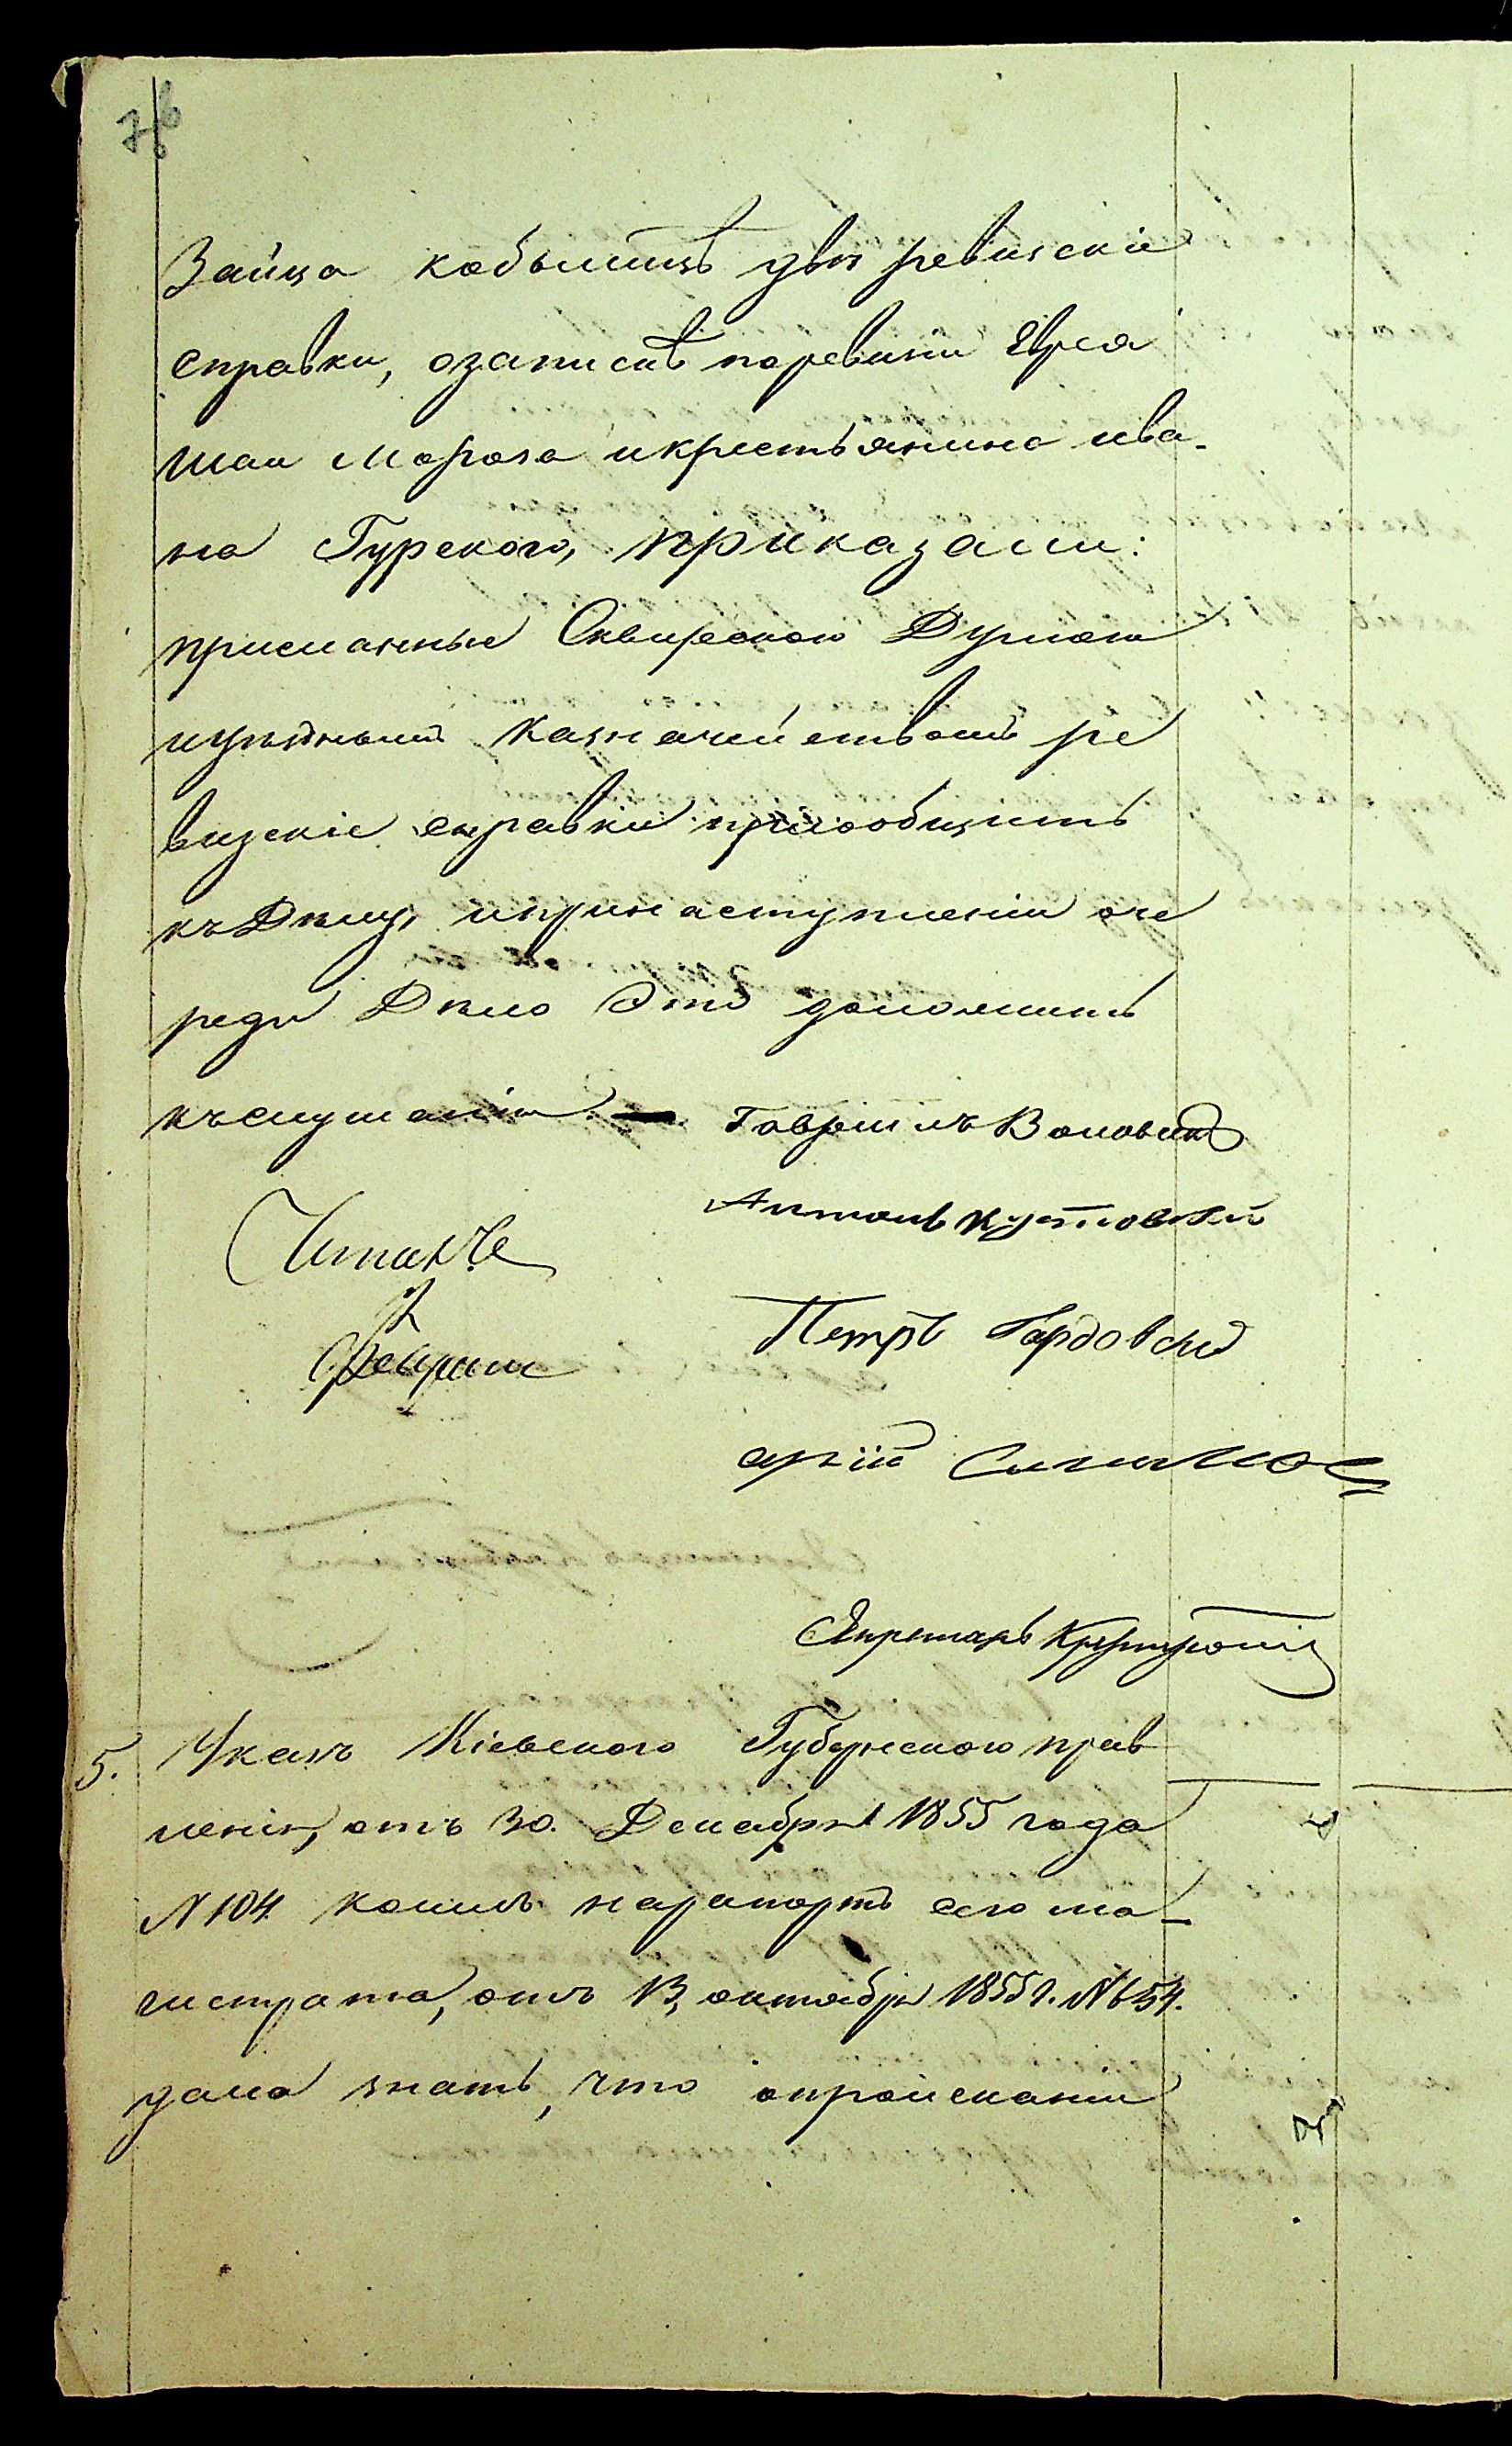 Зайца кобылицъ двѣ ревизскіе
справки, о записѣ по ревизіи Еврея
Шаи Мороза и крестьянина Ива-
на Гурского, приказали:
присланные Сквирскою Думою
и уѣзднымъ казначействомъ ре
визскіе справки пріобщить
къ Дѣлу, и при наступленіи оче
реди Дѣло это доложить
къ слушанію. — Гавріилъ Воловикъ
Антонъ Кутковскій
Читалъ
Петръ Гардовскій
Секретарь
5. Указъ Кіевского Губернского прав
ленія, отъ 30. Декабря 1855 года
N 104 коимъ на рапортъ сего ма-
гистрата, отъ 13, октября 1855 г. N 654.
дало знать, что о пройсканіи